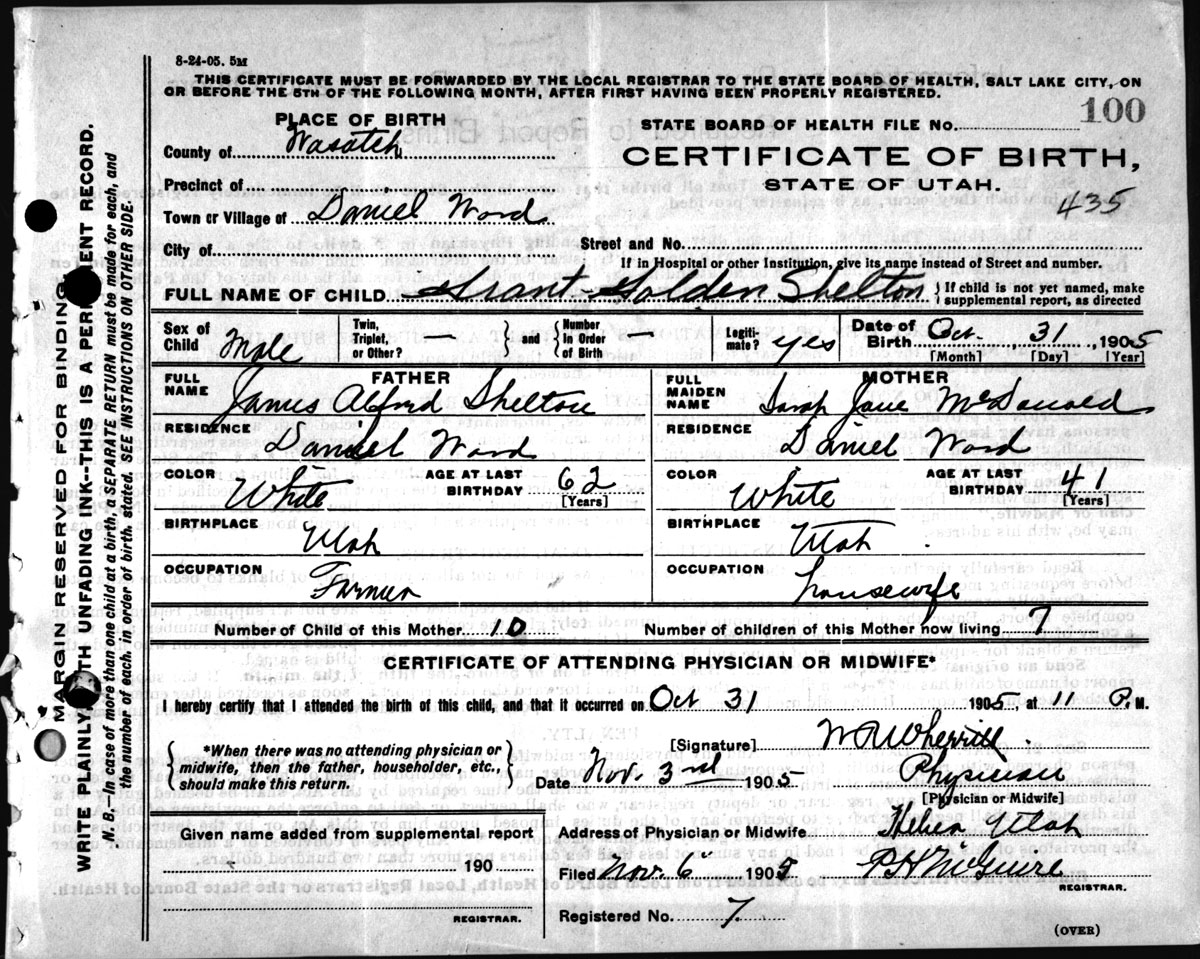 8-24-05. 5M
THIS CERTIFICATE MUST BE FORWARDED BY THE LOCAL REGISTRAR TO THE STATE BOARD OF HEALTH, SALT LAKE CITY, ON
OR BEFORE THE 5TH OF THE FOLLOWING MONTH, AFTER FIRST HAVING BEEN PROPERLY REGISTERED.
PLACE OF BIRTH
STATE BOARD OF HEALTH FILE No. 100
County of Wasatch
CERTIFICATE OF BIRTH,
STATE OF UTAH.
Precinct of
435
Town or Village of Daniel Ward
City of
Street and No.
If in Hospital or other Institution, give its name instead of Street and number.
FULL NAME OF CHILD Grant Golden Shelton } If child is not yet named, make supplemental report, as directed
Sex of Child Male
Twin, Triplet, or Other? — } and { Number In Order of Birth —
Legitimate? yes
Date of Birth Oct. 31, 1905
[Month] [Day] [Year]
FATHER
FULL NAME James Alford Shelton
RESIDENCE Daniel Ward
COLOR White AGE AT LAST BIRTHDAY 62
[Years]
BIRTHPLACE Utah
OCCUPATION Farmer
MOTHER
FULL MAIDEN NAME Sarah Jane McDonald
RESIDENCE Daniel Ward
COLOR White AGE AT LAST BIRTHDAY 41
[Years]
BIRTHPLACE Utah
OCCUPATION housewife
Number of Child of this Mother 10 Number of children of this Mother now living 7
CERTIFICATE OF ATTENDING PHYSICIAN OR MIDWIFE*
I hereby certify that I attended the birth of this child, and that it occurred on Oct 31 1905, at 11 P. M.
{ *When there was no attending physician or
midwife, then the father, householder, etc.,
should make this return. }
[Signature] W R Wherritt
Date Nov. 3rd 1905 Physician
[Physician or Midwife]
Given name added from supplemental report
190
REGISTRAR.
Address of Physician or Midwife Heber Utah
Filed Nov. 6 1905 P H McGuire
REGISTRAR.
Registered No. 7
(OVER)
MARGIN RESERVED FOR BINDING
WRITE PLAINLY WITH UNFADING INK—THIS IS A PERMANENT RECORD.
N. B.—In case of more than one child at a birth, a SEPARATE RETURN must be made for each, and
the number of each, in order of birth, stated. SEE INSTRUCTIONS ON OTHER SIDE.